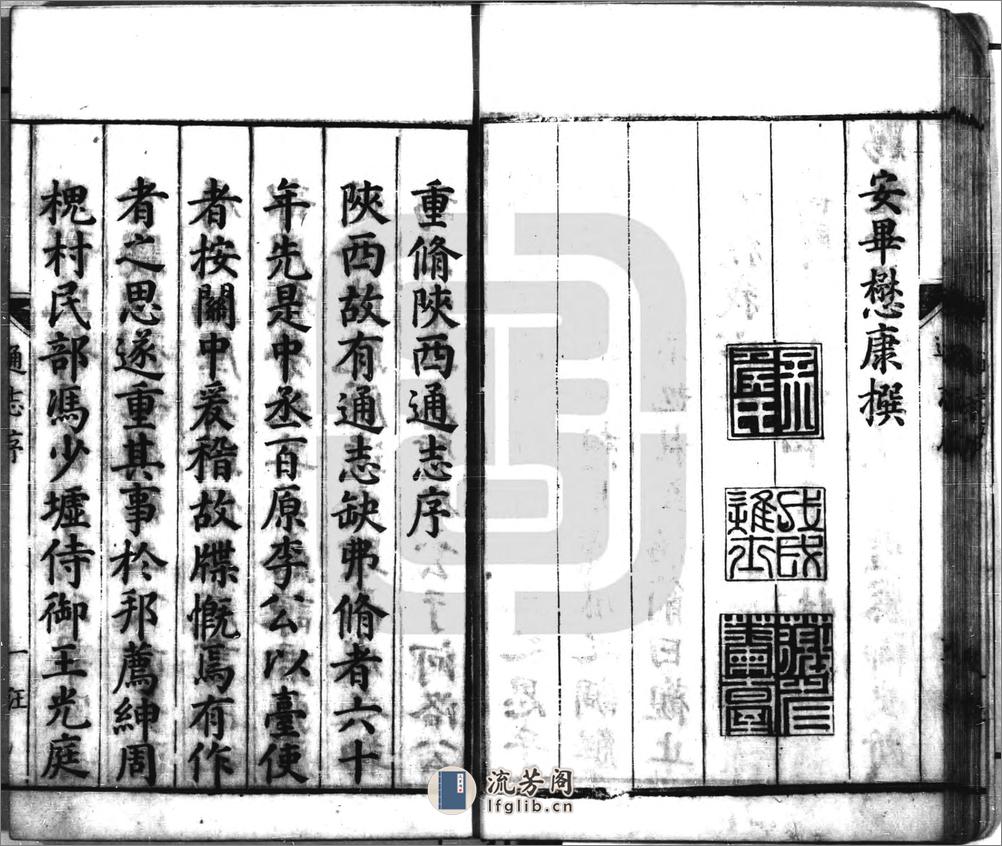 安畢懋康撰
戊戌進士
重脩陝西通志序
陝西故有通志缺弗脩者六十
年先是中丞百原李公以臺使
者按關中爰稽故牒慨焉有作
者之思遂重其事於邦薦紳周
槐村民部馮少墟侍御王光庭
通志序
流芳阁
lfglib.cn